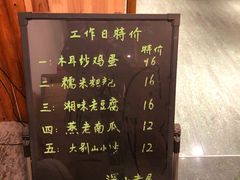 工作日特价
特价
一：木耳炒鸡蛋 16
二：糯米粑粑 16
三：湘味老豆腐 16
四：蒸老南瓜 12
五：大别山小炒 12